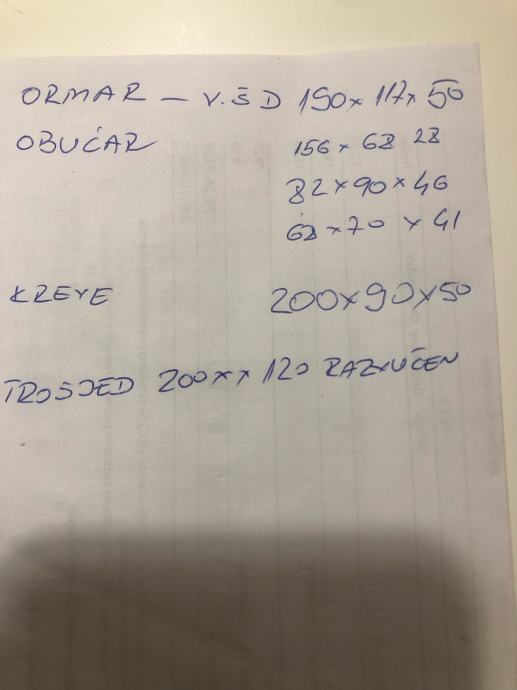 ORMAR – V.Š D 190x 117x 50
OBUĆAR 156 x 68 28
82 x 90 x 46
68 x 70 x 41
KREVE 200x90x50
TROSJED 200xx 120 RAZVUČEN